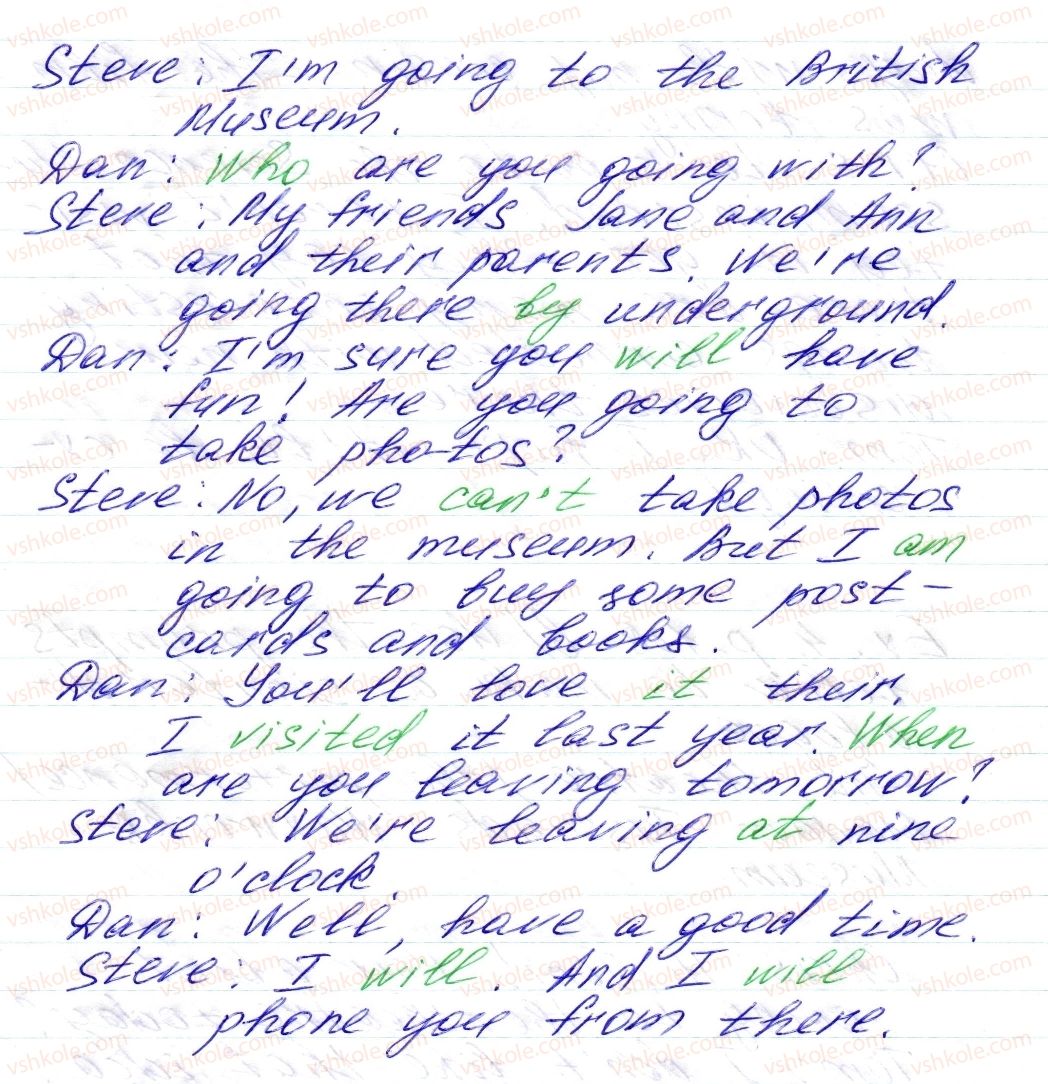 Steve: I'm going to the British
Museum.
Dan: Who are you going with?
Steve: My friends Jane and Ann
and their parents. We're
going there by underground.
Dan: I'm sure you will have
fun! Are you going to
take photos?
Steve: No, we can't take photos
in the museum. But I am
going to buy some post-
cards and books.
Dan: You'll love it their.
I visited it last year. When
are you leaving tomorrow?
Steve: We're leaving at nine
o'clock.
Dan: Well, have a good time.
Steve: I will. And I will
phone you from there.